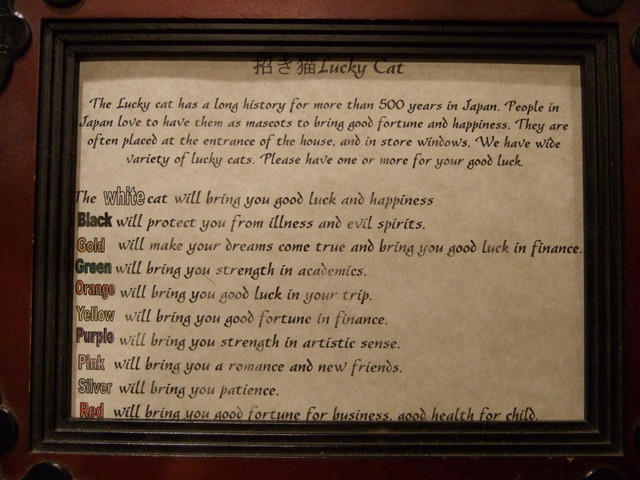 招き猫Lucky Cat
The Lucky cat has a long history for more than 500 years in Japan. People in
Japan love to have them as mascots to bring good fortune and happiness. They are
often placed at the entrance of the house, and in store windows. We have wide
variety of lucky cats. Please have one or more for your good luck.
The white cat will bring you good luck and happiness
Black will protect you from illness and evil spirits.
Gold will make your dreams come true and bring you good luck in finance.
Green will bring you strength in academics.
Orange will bring you good luck in your trip.
Yellow will bring you good fortune in finance.
Purple will bring you strength in artistic sense.
Pink will bring you a romance and new friends.
Silver will bring you patience.
Red will bring you good fortune for business, good health for child.